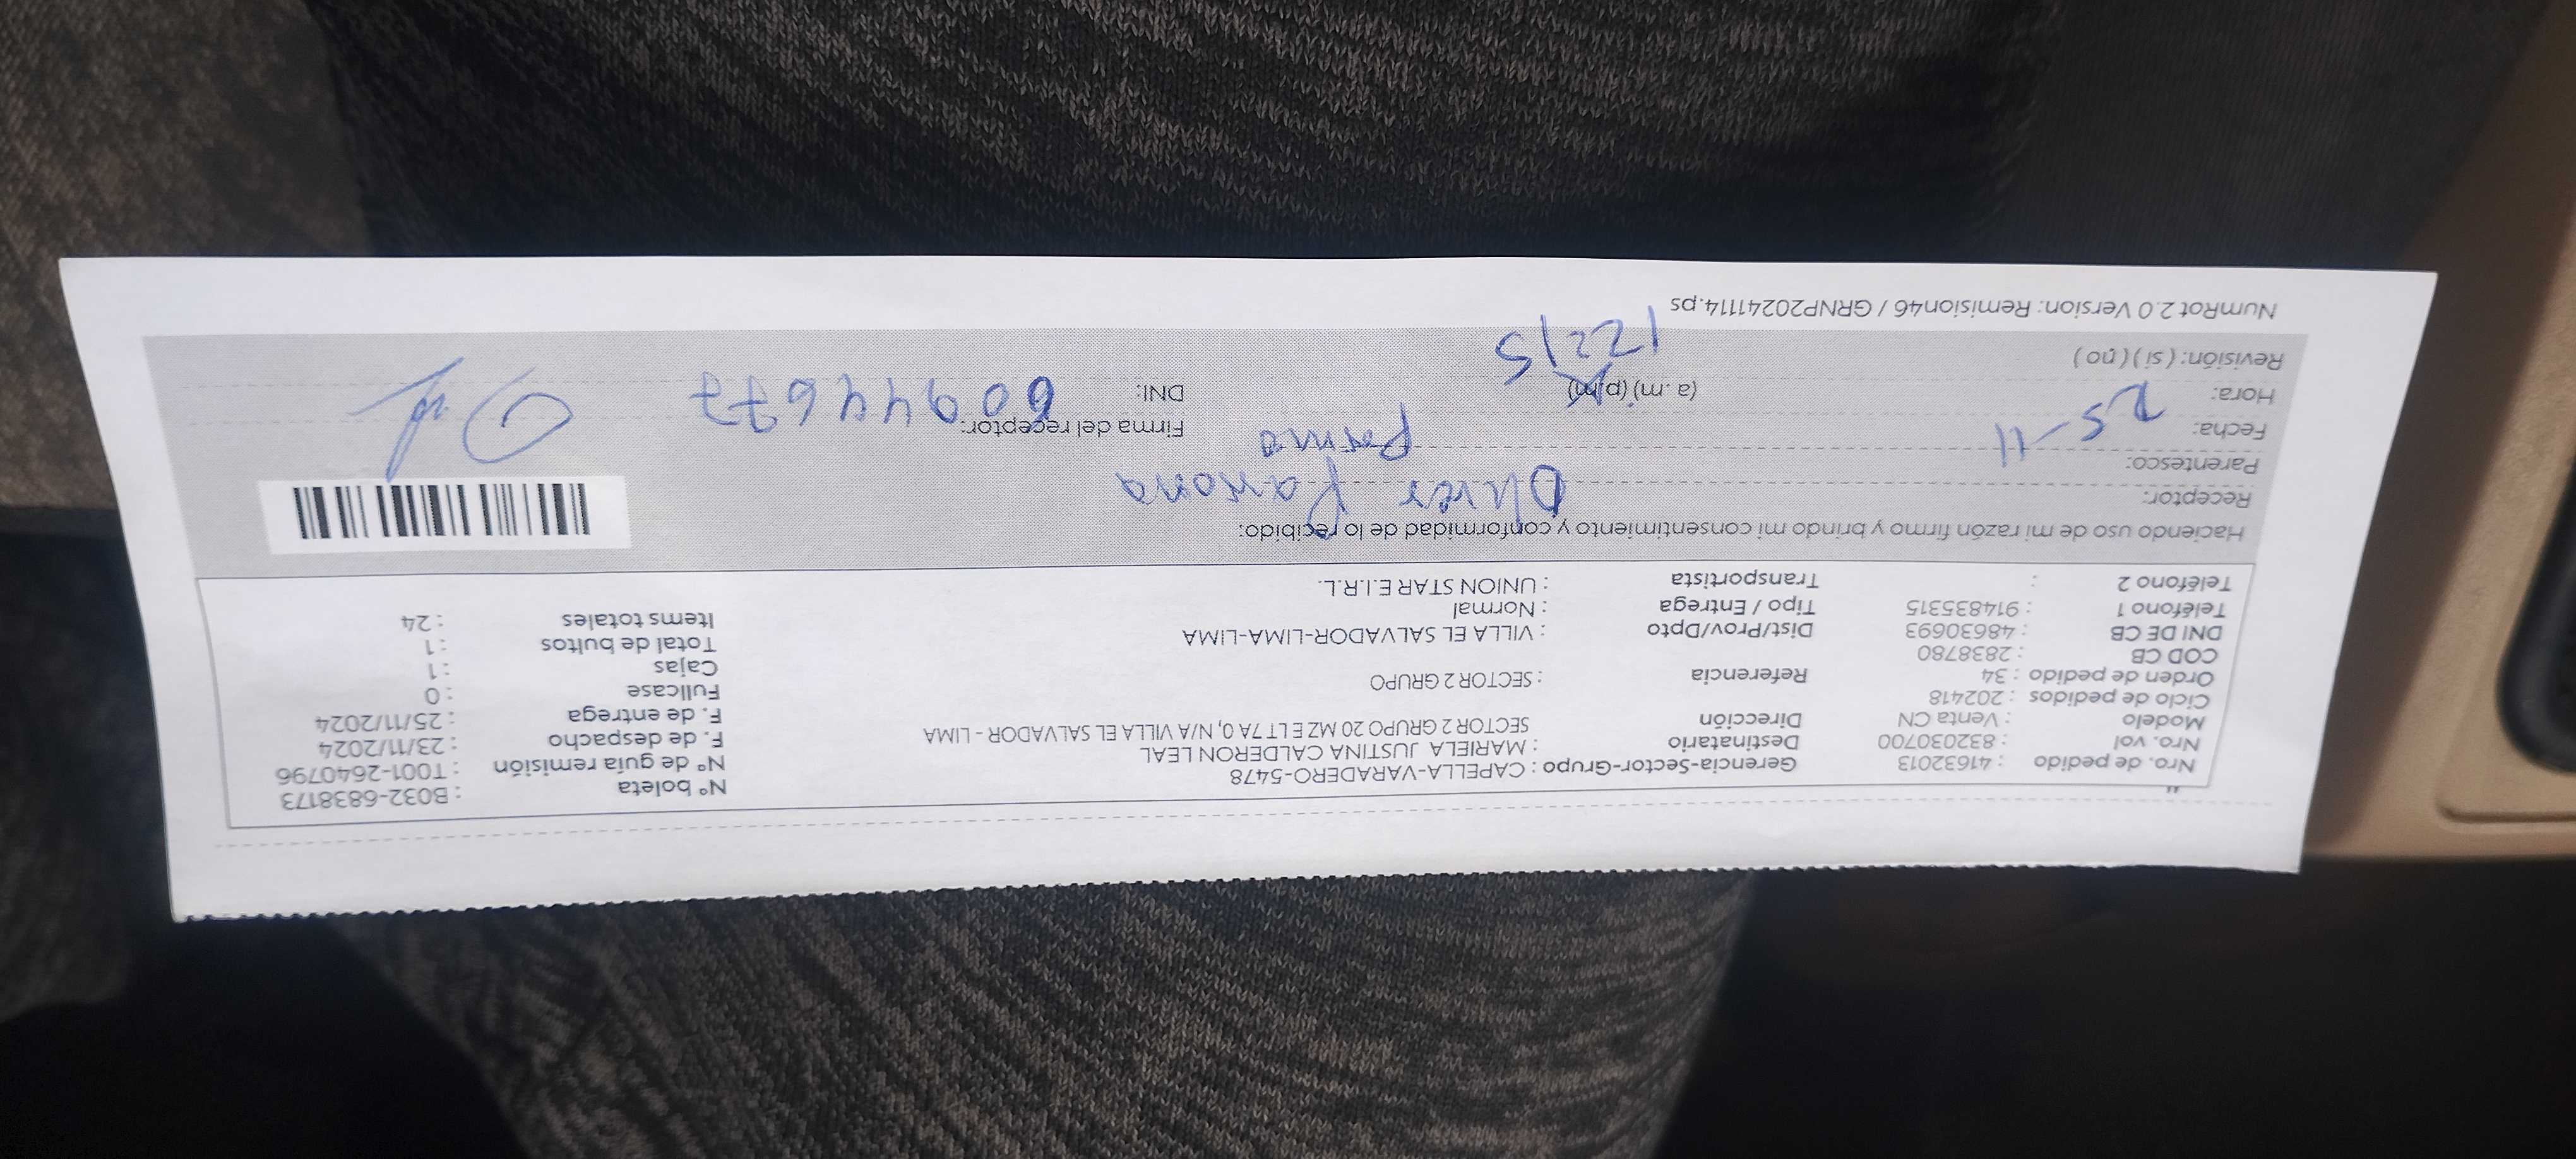 Nro. de pedido : 41632013 Gerencia-Sector-Grupo : CAPELLA-VARADERO-5478 N° boleta : B032-6838173
Nro. vol : 832030700 Destinatario : MARIELA JUSTINA CALDERON LEAL N° de guía remisión : T001-2640796
Modelo : Venta CN Dirección SECTOR 2 GRUPO 20 MZ E LT 7A 0, N/A VILLA EL SALVADOR - LIMA F. de despacho : 23/11/2024
Ciclo de pedidos : 202418 F. de entrega : 25/11/2024
Orden de pedido : 34 Referencia : SECTOR 2 GRUPO Fullcase : 0
COD CB : 2838780 Cajas : 1
DNI DE CB : 48630693 Dist/Prov/Dpto : VILLA EL SALVADOR-LIMA-LIMA Total de bultos : 1
Teléfono 1 : 914835315 Tipo / Entrega : Normal Items totales : 24
Teléfono 2 : Transportista : UNION STAR E.I.R.L.
Haciendo uso de mi razón firmo y brindo mi consentimiento y conformidad de lo recibido:
Receptor: Oliver
Parentesco: Primo
Fecha: 25-11 Firma del receptor:
Hora: (a. m) (p.m) 12:15 DNI: 60944677
Revisión: ( si ) ( no )
NumRot 2.0 Version: Remision46 / GRNP20241114.ps